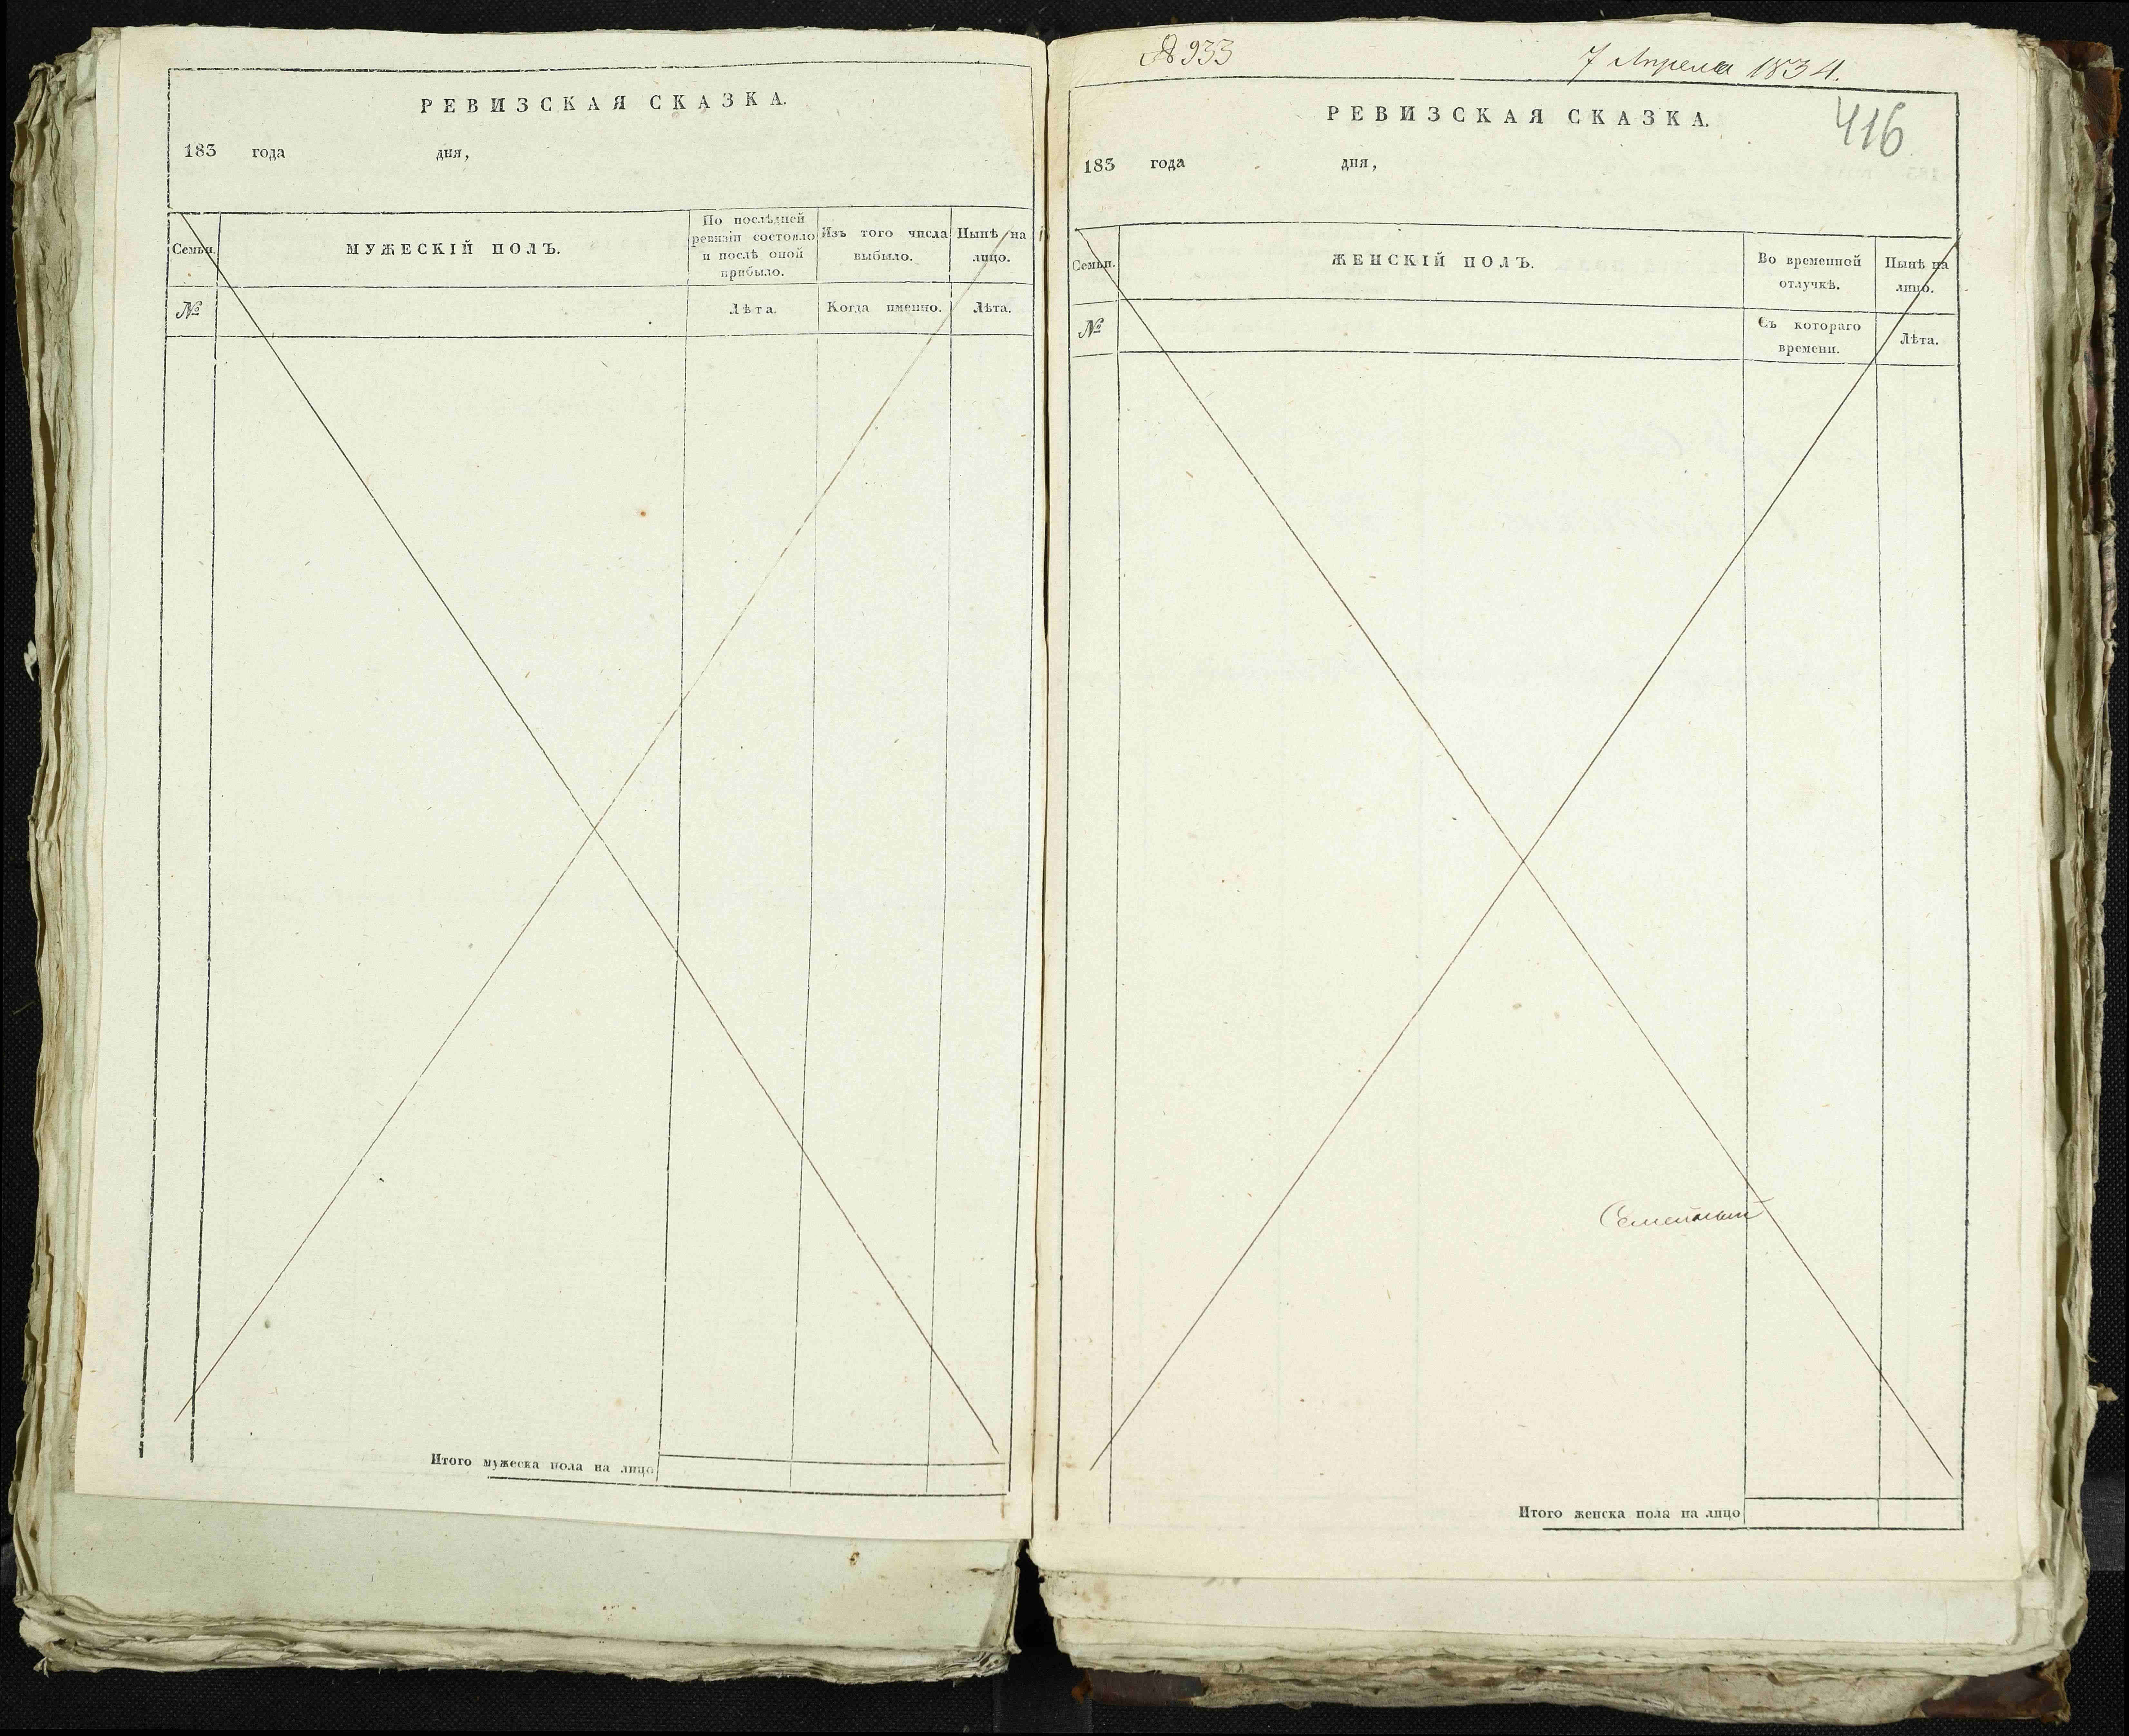 РЕВИЗСКАЯ СКАЗКА.
183 года дня,
Семьи.
МУЖЕСКІЙ ПОЛЪ.
По послѣдней
ревизіи состояло
и послѣ оной
прибыло.
Изъ того числа
выбыло.
Нынѣ на
лицо.
№
Лѣта.
Когда именно.
Лѣта.
Итого мужеска пола на лицо
№ 933
7 Апреля 1834.
416
РЕВИЗСКАЯ СКАЗКА.
183 года дня,
Семьи.
ЖЕНСКІЙ ПОЛЪ.
Во временной
отлучкѣ.
Нынѣ на
лицо.
№
Съ котораго
времени.
Лѣта.
Итого женска пола на лицо